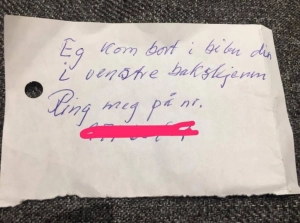 Eg kom bort i bilen din
i venstre bakskjerm
Ring meg på nr.